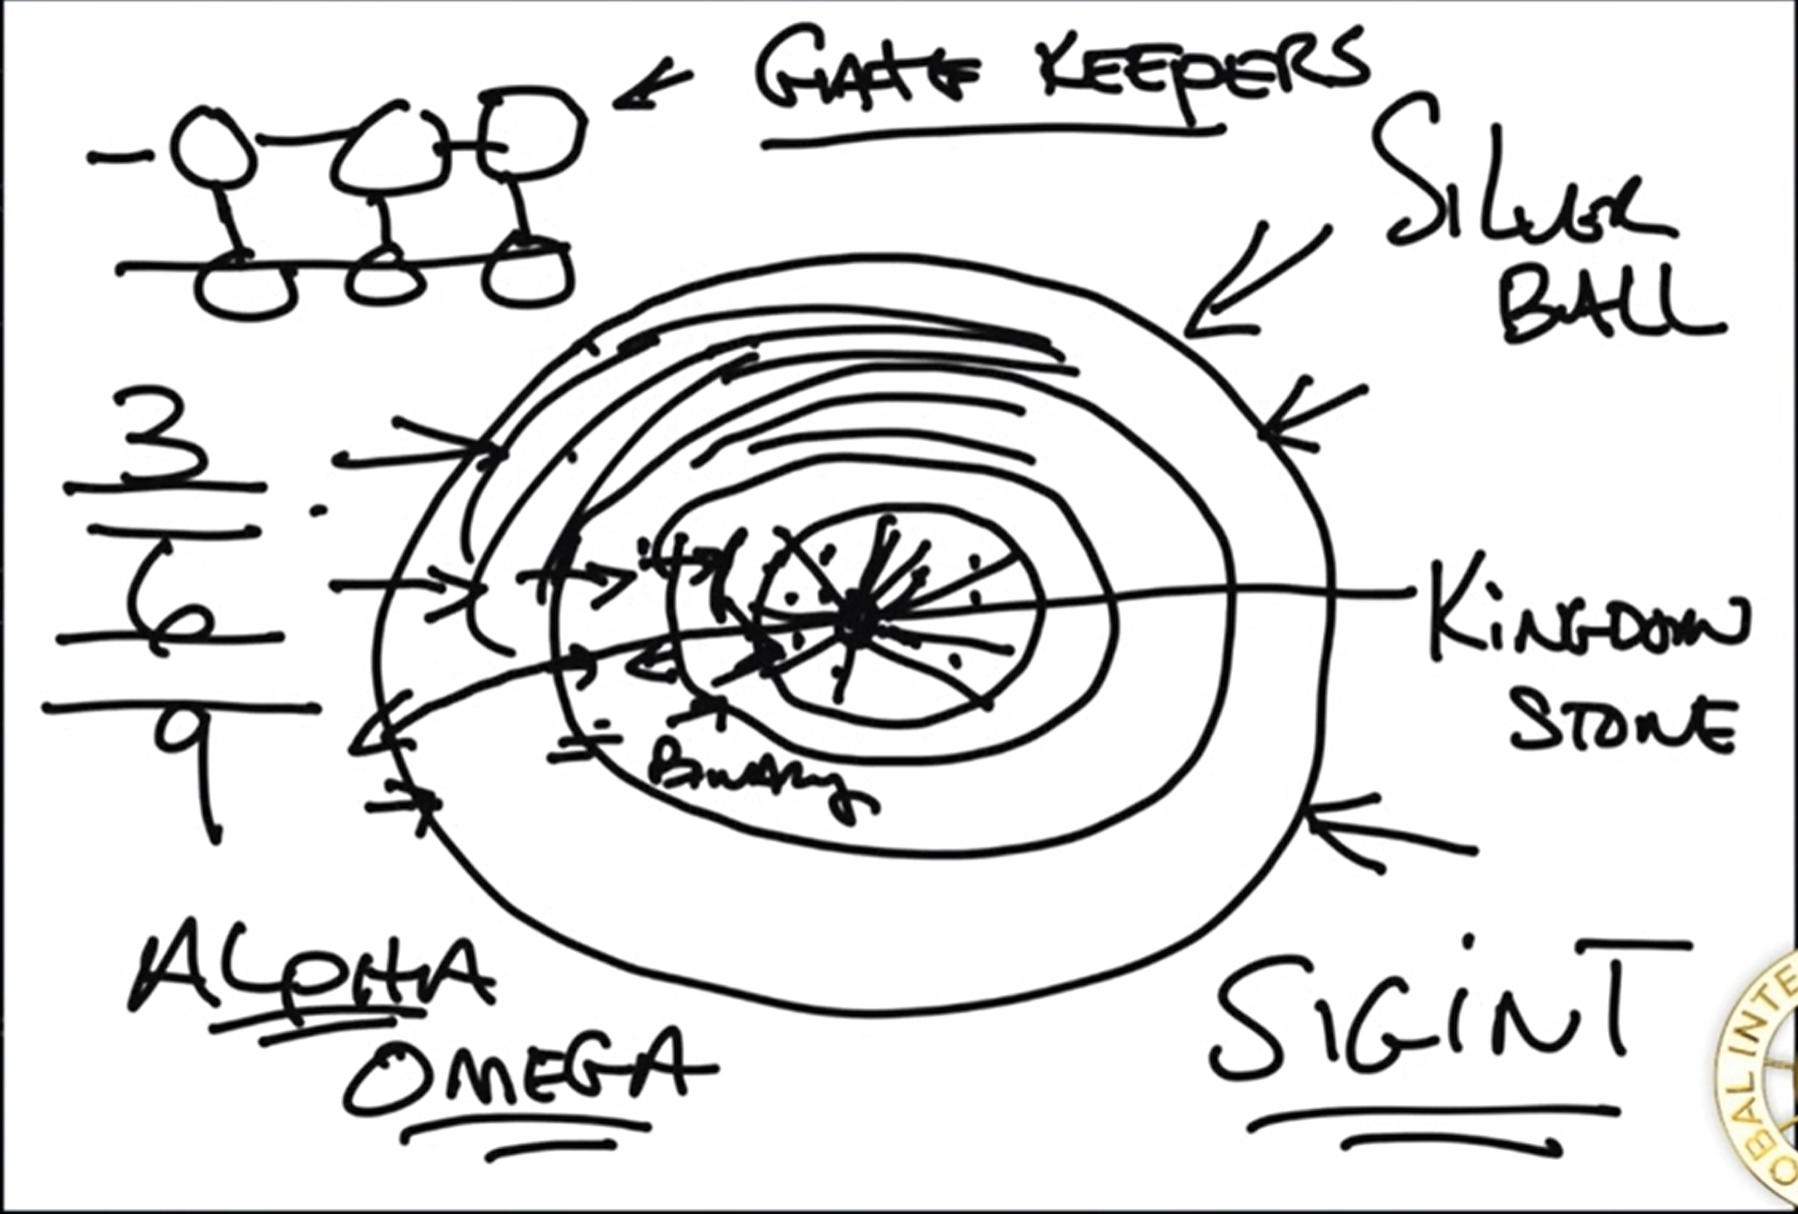 GATE KEEPERS
SILVER
BALL
3
6
9
KiNGDOM
STONE
Binary
ALPHA
OMEGA
SIGiNT
OBAL INTE